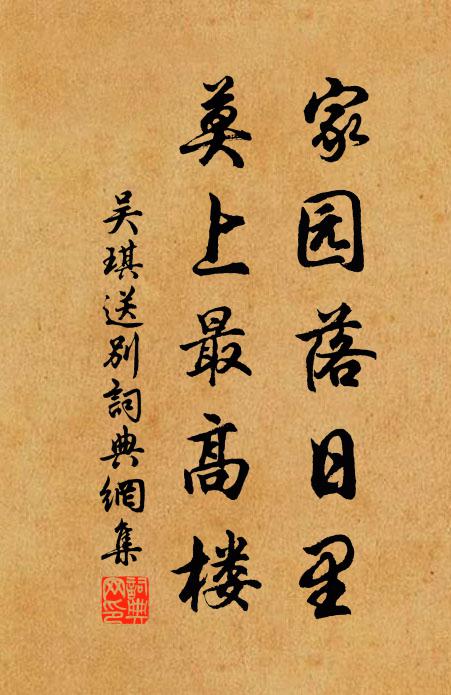 家园落日里
莫上最高楼
吴琪送别詞典網集
詞典
网印